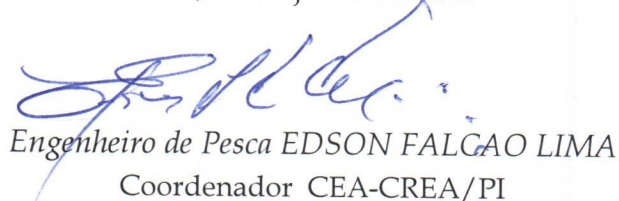 Engenheiro de Pesca EDSON FALCAO LIMA
Coordenador CEA-CREA/PI